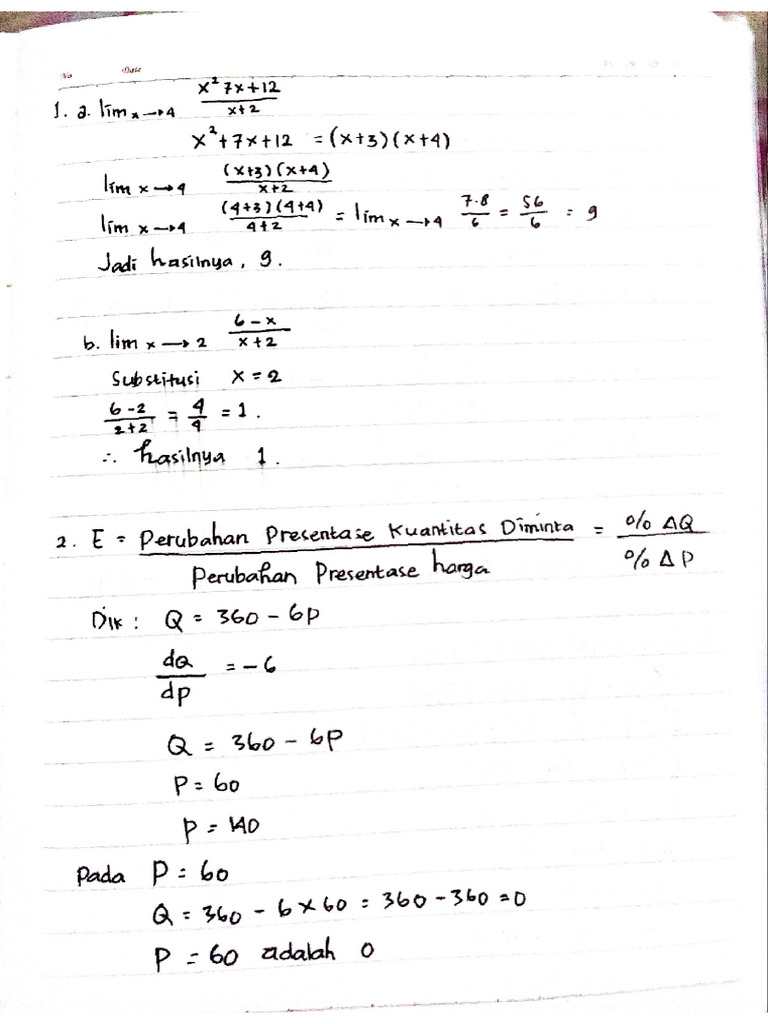 No Date
1. a. lim x→4 x² 7x+12 / x+2
x²+7x+12 = (x+3)(x+4)
lim x→4 (x+3)(x+4) / x+2
lim x→4 (4+3)(4+4) / 4+2 = lim x→4 7.8 / 6 = 56 / 6 = 9
Jadi hasilnya, 9.
b. lim x→2 6-x / x+2
Substitusi x = 2
6-2 / 2+2 = 4 / 4 = 1.
∴ hasilnya 1.
2. E = Perubahan Presentase Kuantitas Diminta / Perubahan Presentase harga = % ΔQ / % ΔP
Dik : Q = 360 - 6p
dQ / dp = -6
Q = 360 - 6P
P = 60
P = 140
Pada P = 60
Q = 360 - 6 x 60 = 360 - 360 = 0
P = 60 adalah 0